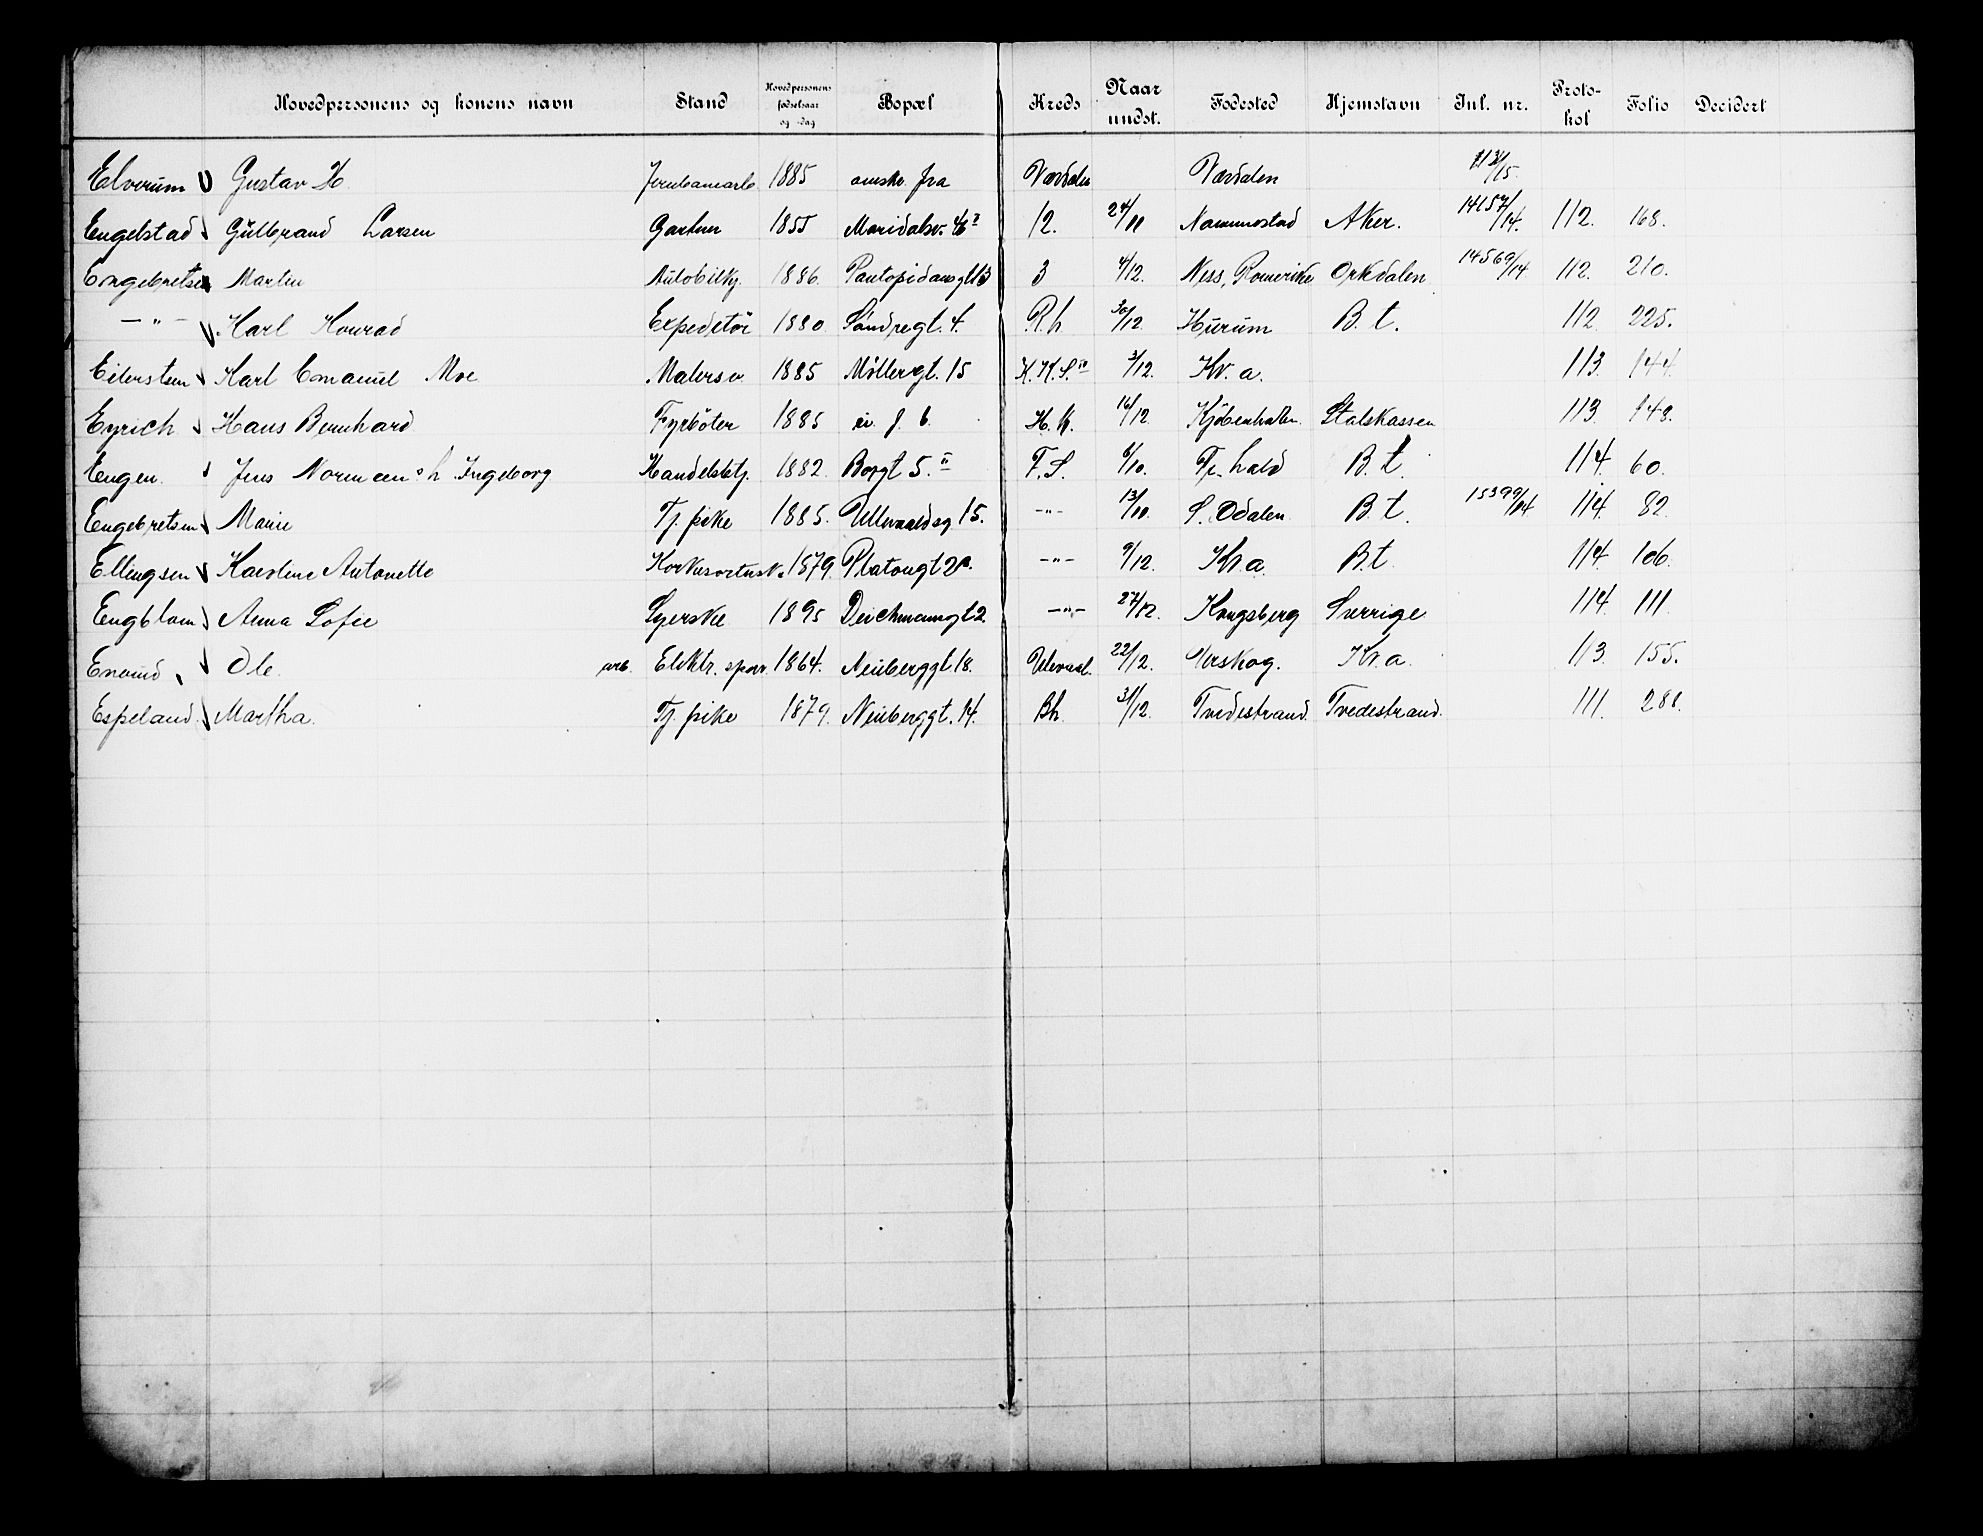 Hovedpersonens og konens navn Stand Hovedpersonens fødselsaar og -dag Bopæl Kreds Naar undst. Fødested Hjemstavn Inl. nr. Protokol Folio Decidert
Elverum Gustav H. Jernbanearb. 1885 omskr. fra Værdalen Værdalen
Engelstad Gulbrand Larsen Gartner 1855 12. 24/11 Nannestad Aker. 14157/14. 112. 168.
Engebretsen Martin Automobilkj. 1886. Pontopidansgt 13 3 4/12. Ness, Romerike Orkdalen 14569/14 112. 210.
— " — Karl Konrad Expeditør 1880. Søndregt. 4. R.h. 30/12 Hurum B. t. 112 225.
Eilertsen Karl Emanuel Moe Malersv. 1885 Møllergt. 15 3/12. Kr. a. 113. 144.
Eyrich Hans Bernhard Fyrbøter 1885 ei f. b. H. K. 16/12 Kjøbenhavn. Statskassen 113. 148.
Engen. Jens Norman o h. Ingeborg Handelsbtj. 1882. Borgt 5. II F. S. 6/10. Fr. hald B. t. 114. 60.
Engebretsen Marie Tj. pike 1885. Ullevaaldsv 15. -"- 13/10. S. Odalen. B. t. 15399/14 114 82.
Ellingsen Karoline Antonette 1879. Platousgt 2a. -"- 9/12. Kr. a. B.t. 114. 106.
Engblom Anna Sofie Syerske 1895 Deichmannsgt 2. -"- 27/12. Kongsberg Sverrige. 114. 111.
Enerud Ole arb. Elektr. sporv. 1864. Neuberggt 18. Ulleval. 22/12. Urskog. Kr. a. 113. 155.
Espeland. Martha. Tj. pike 1879. Neuberggt. 14. Bh. 31/12. Tvedestrand. Tvedestrand. 111. 288.